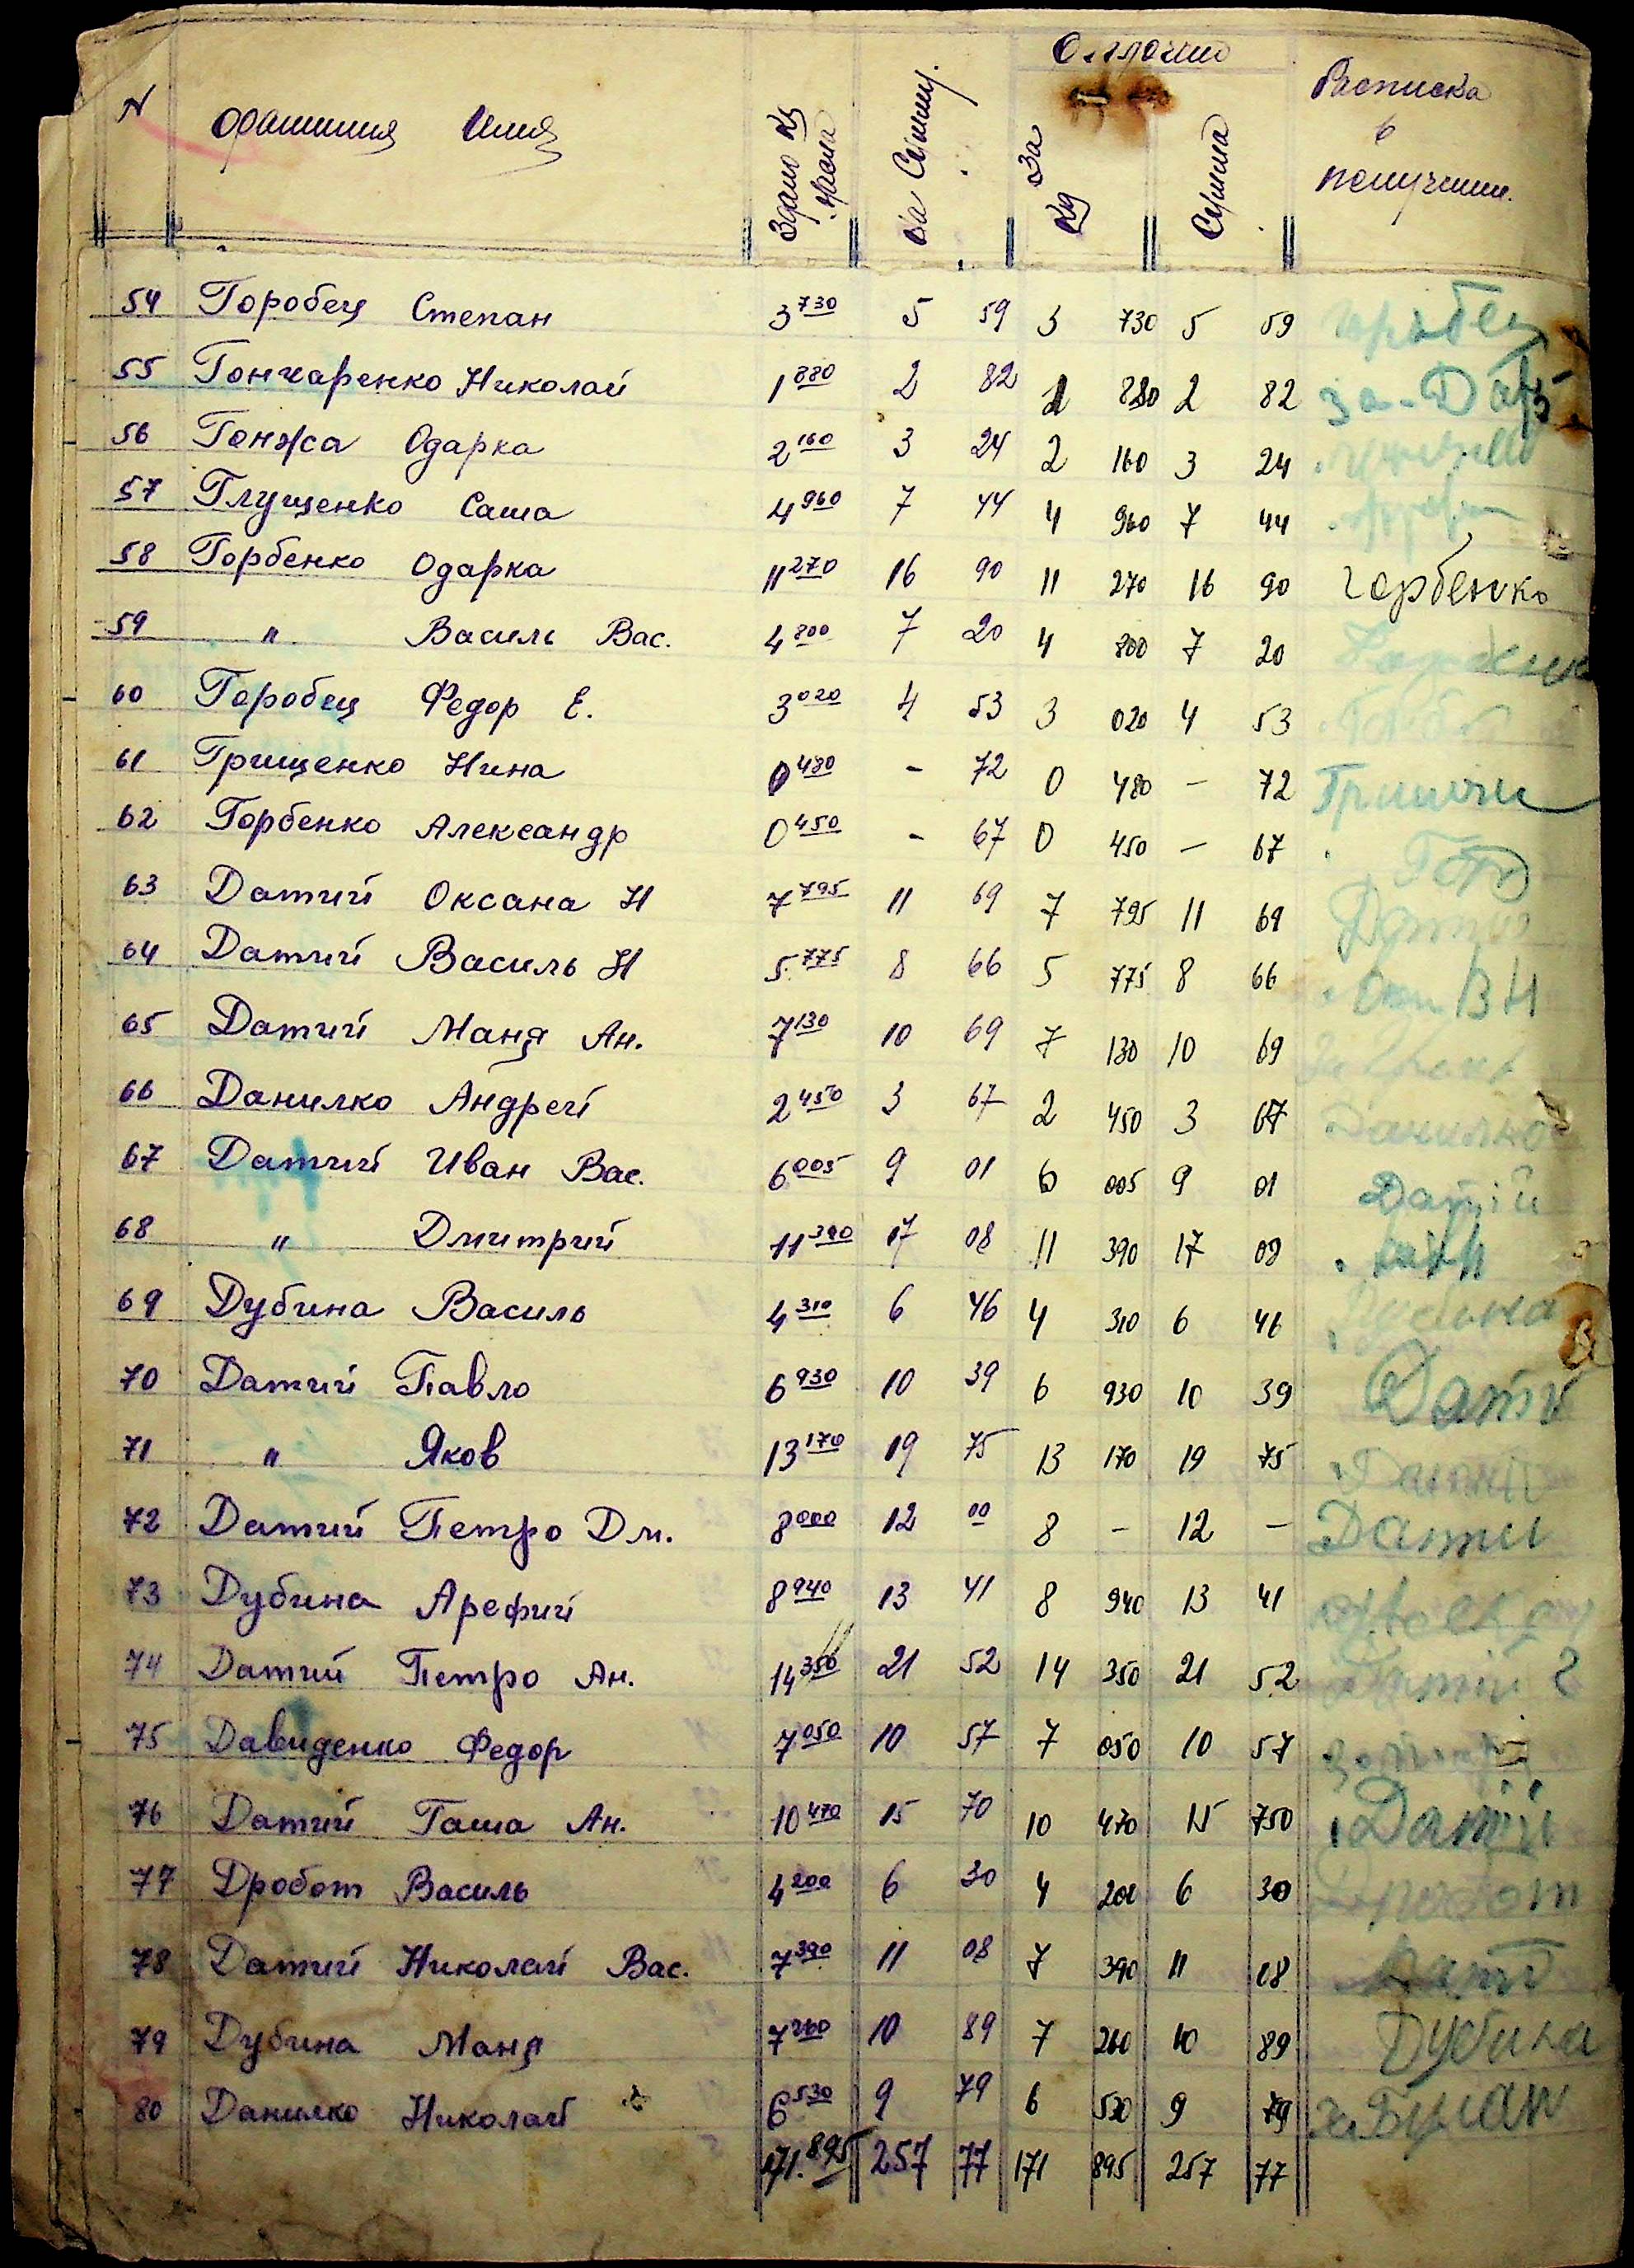 N Фамилия Имя Здано кг масла На Сумму. Оплочино За кг Сумма Расписка в получении.
54 Горобец Степан 3 730 5 59 3 730 5 59
55 Гончаренко Николай 1 880 2 82 1 880 2 82 за-
56 Гонжа Одарка 2 160 3 24 2 160 3 24
57 Глущенко Саша 4 960 7 44 4 960 7 44
58 Горбенко Одарка 11 270 16 90 11 270 16 90 Горбенко
59 " Василь Вас. 4 800 7 20 4 800 7 20
60 Горобец Федор Е. 3 020 4 53 3 020 4 53
61 Грищенко Нина 0 480 - 72 0 480 - 72
62 Горбенко Александр 0 450 - 67 0 450 - 67
63 Датий Оксана Н 7 795 11 69 7 795 11 69
64 Датий Василь Н 5 775 8 66 5 775 8 66 ВН
65 Датий Маня Ан. 7 130 10 69 7 130 10 69
66 Данилко Андрей 2 450 3 67 2 450 3 67 Данилко
67 Датий Иван Вас. 6 005 9 01 6 005 9 01 Датій
68 " Дмитрий 11 390 17 08 11 390 17 08
69 Дубина Василь 4 310 6 46 4 310 6 46 Дубина
70 Датий Павло 6 930 10 39 6 930 10 39
71 " Яков 13 170 19 75 13 170 19 75
72 Датий Петро Дм. 8 000 12 00 8 - 12 - Дати
73 Дубина Арефий 8 940 13 41 8 940 13 41
74 Датий Петро Ан. 14 350 21 52 14 350 21 52
75 Давиденко Федор 7 050 10 57 7 050 10 57
76 Датий Гаша Ан. 10 470 15 70 10 470 15 70 Датій
77 Дробот Василь 4 200 6 30 4 200 6 30 Дробот
78 Датий Николай Вас. 7 390 11 08 7 390 11 08
79 Дубина Маня 7 260 10 89 7 260 10 89 Дубина
80 Данилко Николай 6 530 9 79 6 530 9 79
171.895 257 77 171 895 257 77